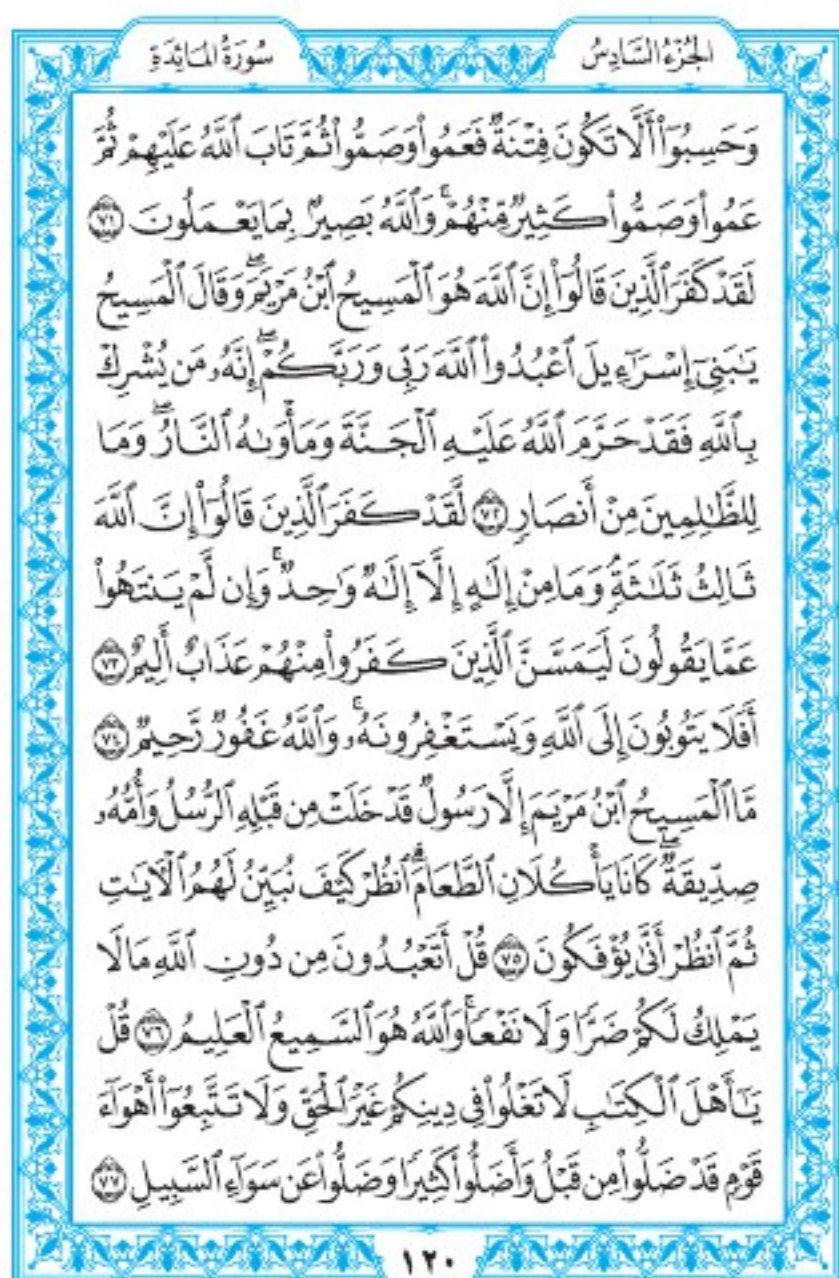 الجُزْءُ السَّادِسُ
سُورَةُ المَائِدَةِ
وَحَسِبُوٓا۟ أَلَّا تَكُونَ فِتْنَةٌ فَعَمُوا۟ وَصَمُّوا۟ ثُمَّ تَابَ ٱللَّهُ عَلَيْهِمْ ثُمَّ
عَمُوا۟ وَصَمُّوا۟ كَثِيرٌ مِّنْهُمْ ۚ وَٱللَّهُ بَصِيرٌۢ بِمَا يَعْمَلُونَ ۝٧١
لَقَدْ كَفَرَ ٱلَّذِينَ قَالُوٓا۟ إِنَّ ٱللَّهَ هُوَ ٱلْمَسِيحُ ٱبْنُ مَرْيَمَ ۖ وَقَالَ ٱلْمَسِيحُ
يَـٰبَنِىٓ إِسْرَٰٓءِيلَ ٱعْبُدُوا۟ ٱللَّهَ رَبِّى وَرَبَّكُمْ ۖ إِنَّهُۥ مَن يُشْرِكْ
بِٱللَّهِ فَقَدْ حَرَّمَ ٱللَّهُ عَلَيْهِ ٱلْجَنَّةَ وَمَأْوَىٰهُ ٱلنَّارُ ۖ وَمَا
لِلظَّـٰلِمِينَ مِنْ أَنصَارٍ ۝٧٢ لَّقَدْ كَفَرَ ٱلَّذِينَ قَالُوٓا۟ إِنَّ ٱللَّهَ
ثَالِثُ ثَلَـٰثَةٍ ۘ وَمَا مِنْ إِلَـٰهٍ إِلَّآ إِلَـٰهٌ وَٰحِدٌ ۚ وَإِن لَّمْ يَنتَهُوا۟
عَمَّا يَقُولُونَ لَيَمَسَّنَّ ٱلَّذِينَ كَفَرُوا۟ مِنْهُمْ عَذَابٌ أَلِيمٌ ۝٧٣
أَفَلَا يَتُوبُونَ إِلَى ٱللَّهِ وَيَسْتَغْفِرُونَهُۥ ۚ وَٱللَّهُ غَفُورٌ رَّحِيمٌ ۝٧٤
مَّا ٱلْمَسِيحُ ٱبْنُ مَرْيَمَ إِلَّا رَسُولٌ قَدْ خَلَتْ مِن قَبْلِهِ ٱلرُّسُلُ وَأُمُّهُۥ
صِدِّيقَةٌ ۖ كَانَا يَأْكُلَانِ ٱلطَّعَامَ ۗ ٱنظُرْ كَيْفَ نُبَيِّنُ لَهُمُ ٱلْـَٔايَـٰتِ
ثُمَّ ٱنظُرْ أَنَّىٰ يُؤْفَكُونَ ۝٧٥ قُلْ أَتَعْبُدُونَ مِن دُونِ ٱللَّهِ مَا لَا
يَمْلِكُ لَكُمْ ضَرًّا وَلَا نَفْعًا ۚ وَٱللَّهُ هُوَ ٱلسَّمِيعُ ٱلْعَلِيمُ ۝٧٦ قُلْ
يَـٰٓأَهْلَ ٱلْكِتَـٰبِ لَا تَغْلُوا۟ فِى دِينِكُمْ غَيْرَ ٱلْحَقِّ وَلَا تَتَّبِعُوٓا۟ أَهْوَآءَ
قَوْمٍ قَدْ ضَلُّوا۟ مِن قَبْلُ وَأَضَلُّوا۟ كَثِيرًا وَضَلُّوا۟ عَن سَوَآءِ ٱلسَّبِيلِ ۝٧٧
١٢٠